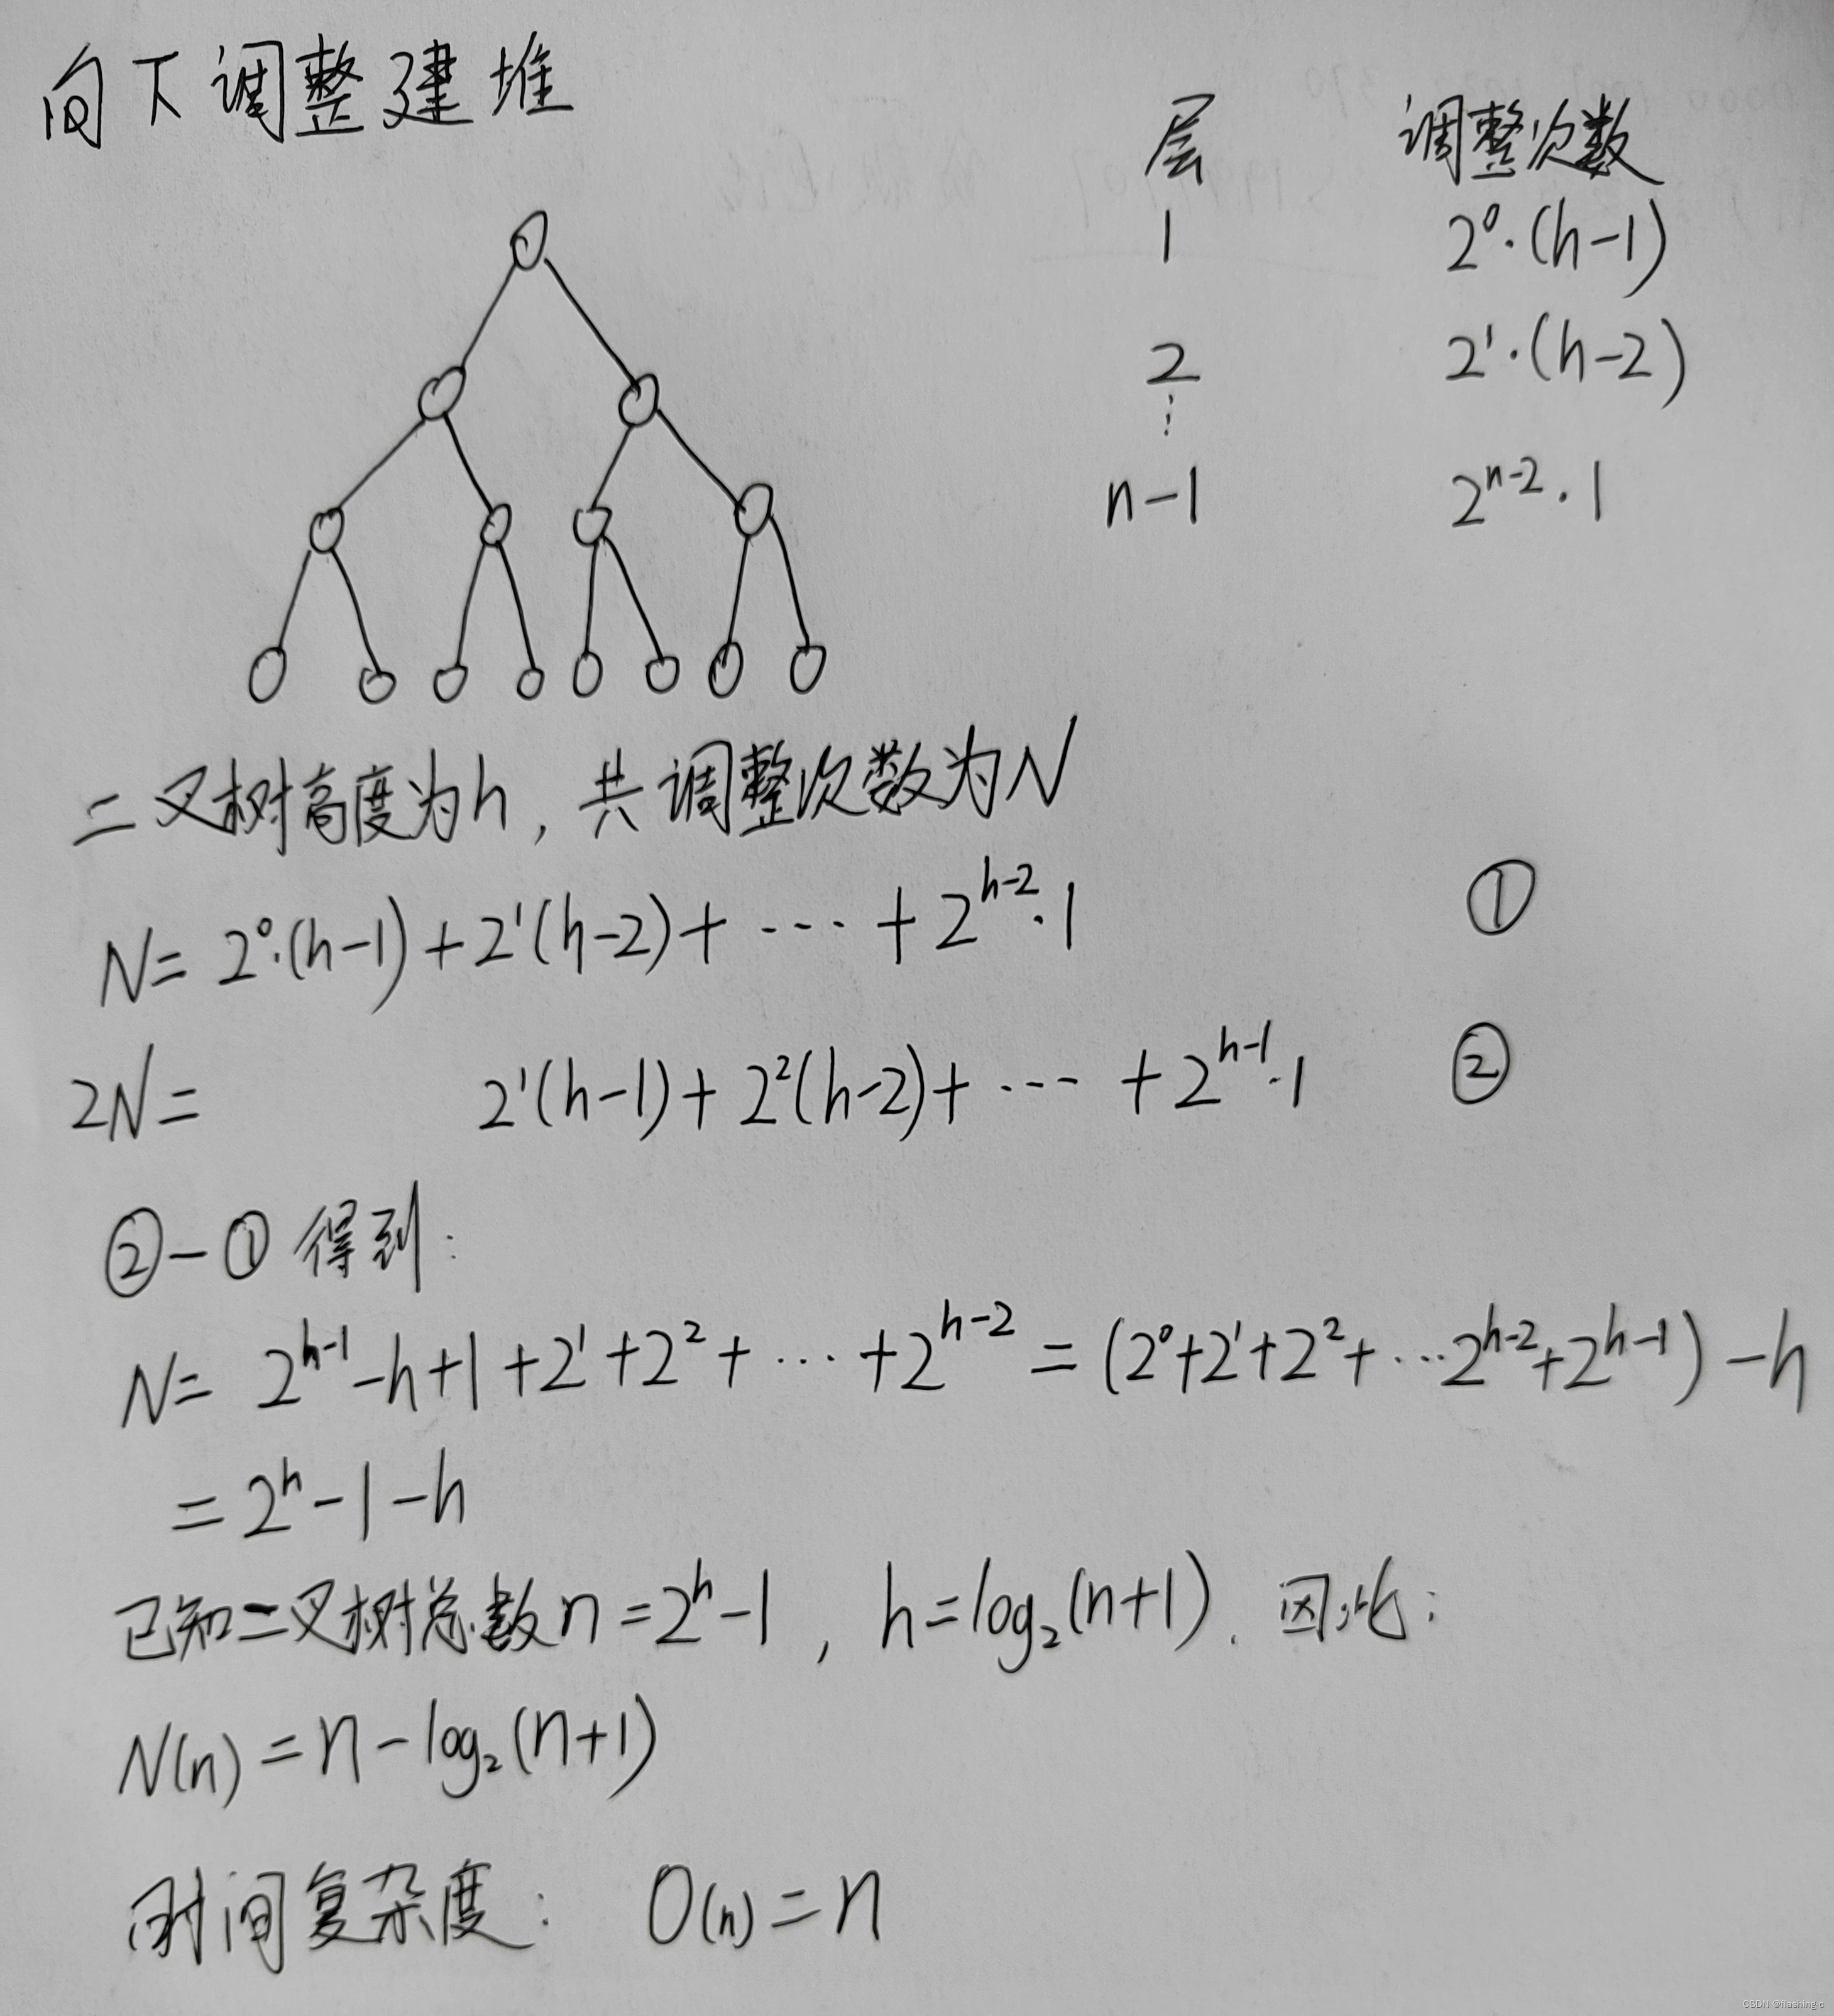 向下调整建堆
层 调整次数
1 2⁰·(h-1)
2 2¹·(h-2)
⋮
n-1 2ⁿ⁻²·1
二叉树高度为h, 共调整次数为N
N= 2⁰·(h-1)+2¹(h-2)+ ··· +2^{h-2}·1 ①
2N= 2¹(h-1)+2²(h-2)+ ··· +2^{h-1}·1 ②
②-①得到:
N= 2^{h-1}-h+1+2¹+2²+ ··· +2^{h-2} = (2⁰+2¹+2²+···2^{h-2}+2^{h-1})-h
=2^h-1-h
已知二叉树总数n=2^h-1, h=log₂(n+1). 因此:
N(n)=n-log₂(n+1)
时间复杂度: O(n)=n
CSDN @flashing-c